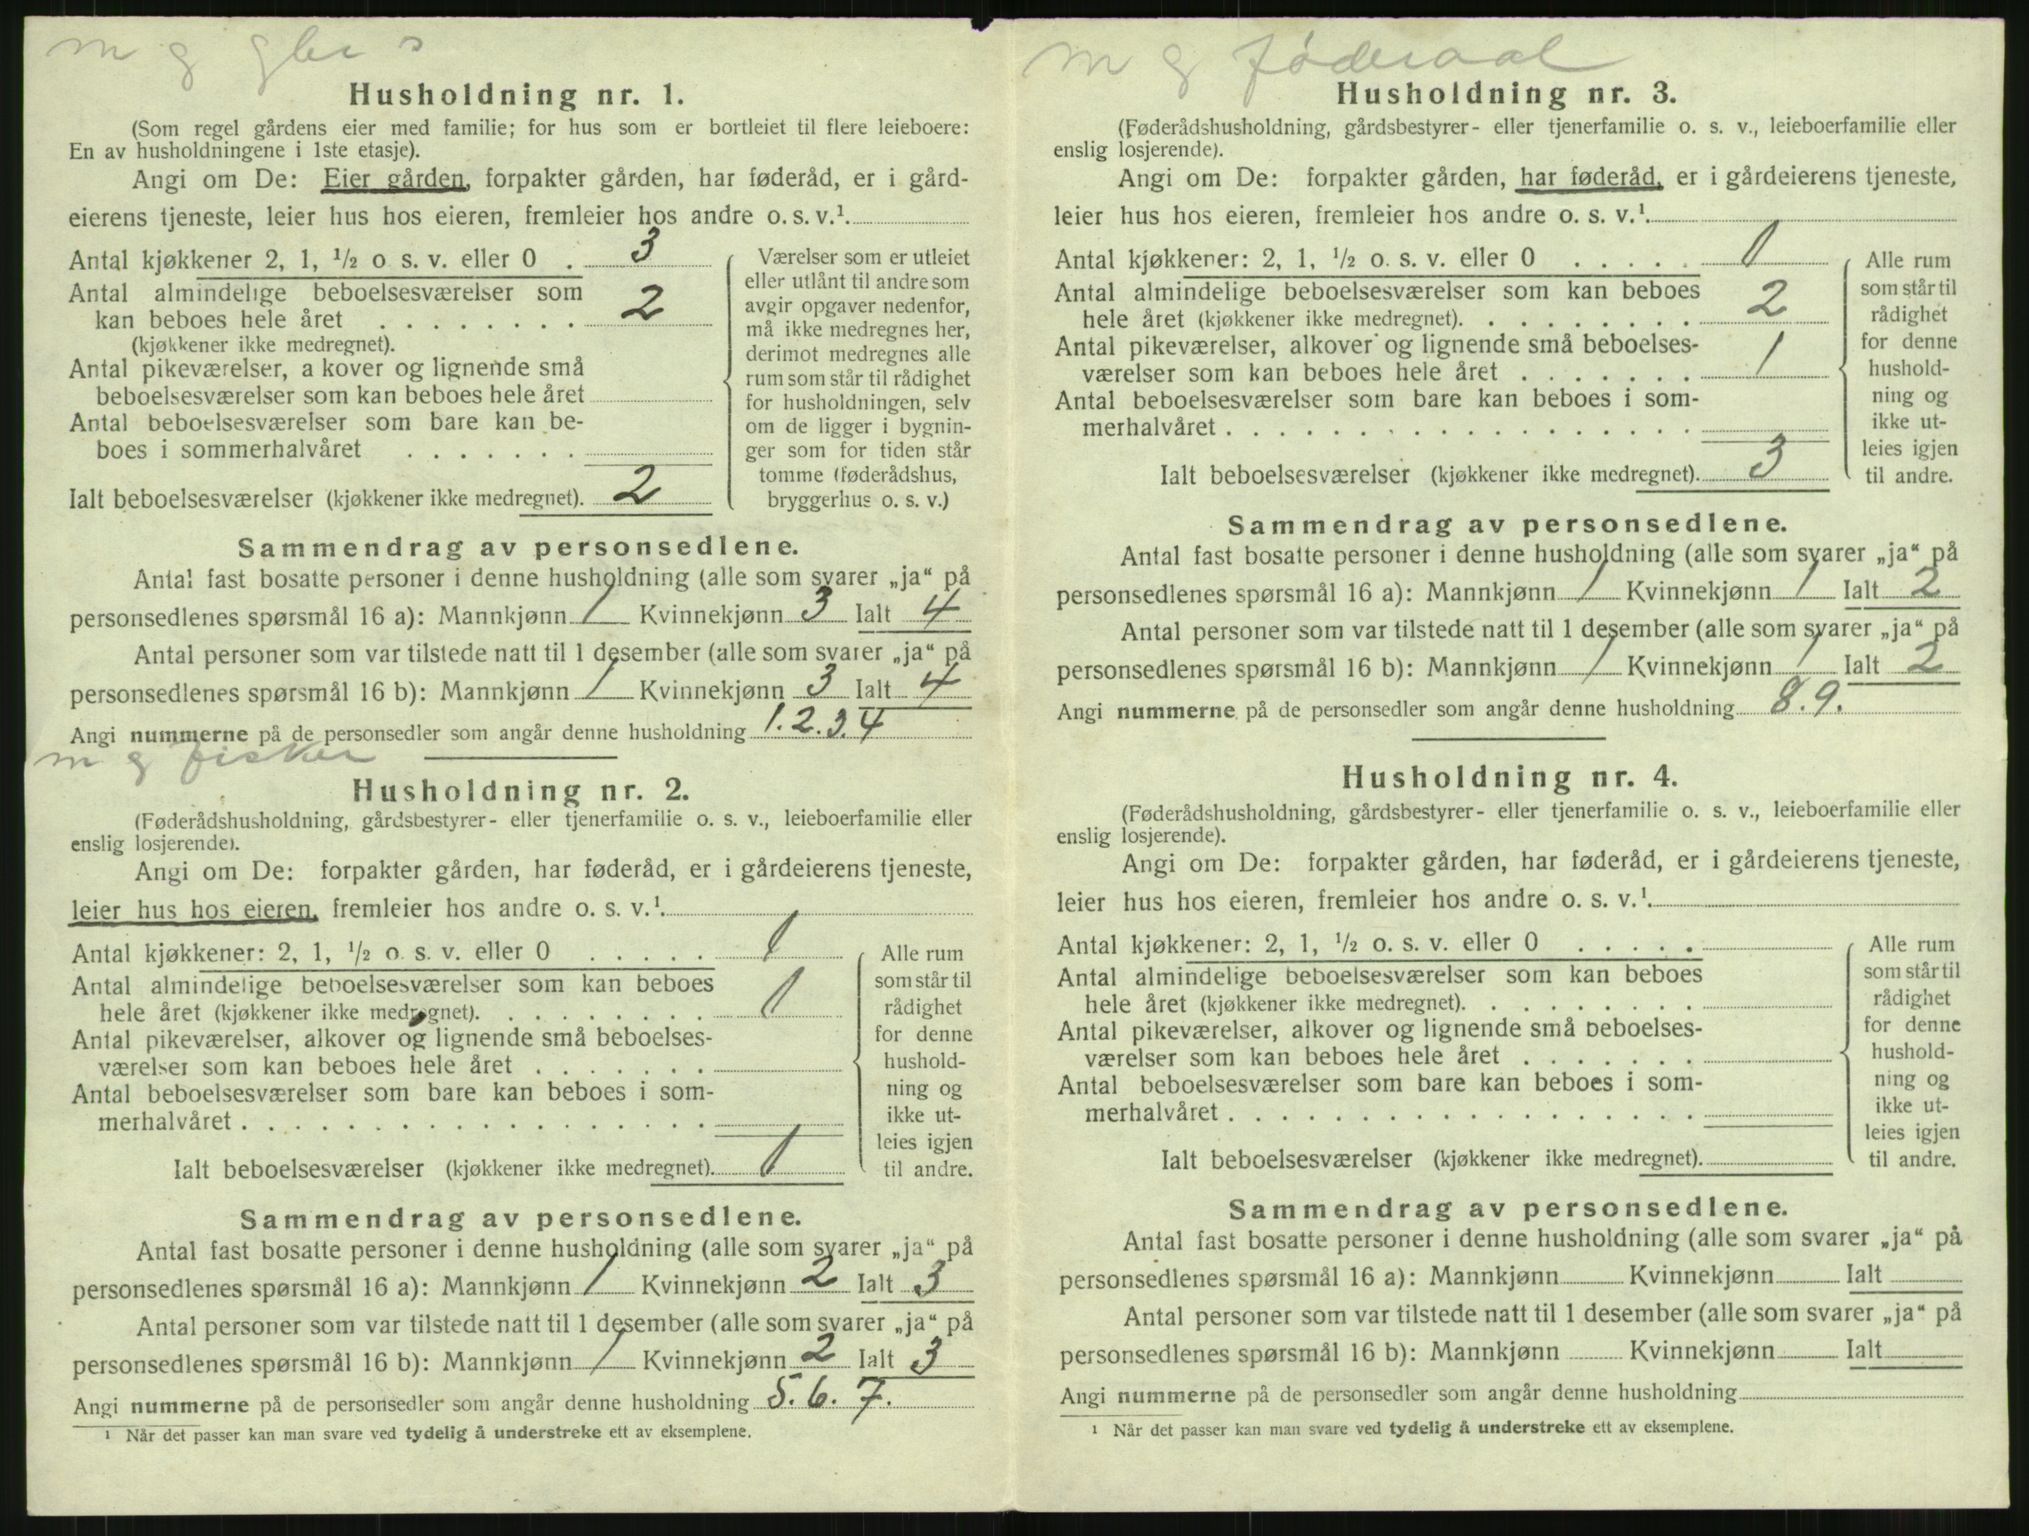 m g gbr
Husholdning nr. 1.
(Som regel gårdens eier med familie; for hus som er bortleiet til flere leieboere:
En av husholdningene i 1ste etasje).
Angi om De: Eier gården, forpakter gården, har føderåd, er i gård-
eierens tjeneste, leier hus hos eieren, fremleier hos andre o. s. v.¹
Antal kjøkkener 2, 1, ½ o s. v. eller 0 . 3
Antal almindelige beboelsesværelser som
kan beboes hele året . . . . . . . . 2
(kjøkkener ikke medregnet).
Antal pikeværelser, a kover og lignende små
beboelsesværelser som kan beboes hele året
Antal beboelsesværelser som bare kan be-
boes i sommerhalvåret . . . . . . .
Ialt beboelsesværelser (kjøkkener ikke medregnet). 2
Værelser som er utleiet
eller utlånt til andre som
avgir opgaver nedenfor,
må ikke medregnes her,
derimot medregnes alle
rum som står til rådighet
for husholdningen, selv
om de ligger i bygnin-
ger som for tiden står
tomme (føderådshus,
bryggerhus o. s. v.)
Sammendrag av personsedlene.
Antal fast bosatte personer i denne husholdning (alle som svarer „ja“ på
personsedlenes spørsmål 16 a): Mannkjønn 1 Kvinnekjønn 3 Ialt 4
Antal personer som var tilstede natt til 1 desember (alle som svarer „ja“ på
personsedlenes spørsmål 16 b): Mannkjønn 1 Kvinnekjønn 3 Ialt 4
Angi nummerne på de personsedler som angår denne husholdning 1.2.3.4
m g fisker
Husholdning nr. 2.
(Føderådshusholdning, gårdsbestyrer- eller tjenerfamilie o. s. v., leieboerfamilie eller
enslig losjerende).
Angi om De: forpakter gården, har føderåd, er i gårdeierens tjeneste,
leier hus hos eieren, fremleier hos andre o. s. v.¹
Antal kjøkkener: 2, 1, ½ o. s. v. eller 0 . . . . . 1
Antal almindelige beboelsesværelser som kan beboes
hele året (kjøkkener ikke medregnet). . . . . . . . . 1
Antal pikeværelser, alkover og lignende små beboelses-
værelser som kan beboes hele året . . . . . . .
Antal beboelsesværelser som bare kan beboes i som-
merhalvåret . . . . . . . . . . . . . . . . . .
Ialt beboelsesværelser (kjøkkener ikke medregnet). 1
Alle rum
som står til
rådighet
for denne
hushold-
ning og
ikke ut-
leies igjen
til andre.
Sammendrag av personsedlene.
Antal fast bosatte personer i denne husholdning (alle som svarer „ja“ på
personsedlenes spørsmål 16 a): Mannkjønn 1 Kvinnekjønn 2 Ialt 3
Antal personer som var tilstede natt til 1 desember (alle som svarer „ja“ på
personsedlenes spørsmål 16 b): Mannkjønn 1 Kvinnekjønn 2 Ialt 3
Angi nummerne på de personsedler som angår denne husholdning 5.6.7.
¹ Når det passer kan man svare ved tydelig å understreke ett av eksemplene.
m g føderaad
Husholdning nr. 3.
(Føderådshusholdning, gårdsbestyrer- eller tjenerfamilie o. s. v., leieboerfamilie eller
enslig losjerende).
Angi om De: forpakter gården, har føderåd, er i gårdeierens tjeneste,
leier hus hos eieren, fremleier hos andre o. s. v.¹
Antal kjøkkener: 2, 1, ½ o. s. v. eller 0 . . . . . 1
Antal almindelige beboelsesværelser som kan beboes
hele året (kjøkkener ikke medregnet). . . . . . . . . 2
Antal pikeværelser, alkover og lignende små beboelses-
værelser som kan beboes hele året . . . . . . . 1
Antal beboelsesværelser som bare kan beboes i som-
merhalvåret . . . . . . . . . . . . . . . . . .
Ialt beboelsesværelser (kjøkkener ikke medregnet). 3
Alle rum
som står til
rådighet
for denne
hushold-
ning og
ikke ut-
leies igjen
til andre.
Sammendrag av personsedlene.
Antal fast bosatte personer i denne husholdning (alle som svarer „ja“ på
personsedlenes spørsmål 16 a): Mannkjønn 1 Kvinnekjønn 1 Ialt 2
Antal personer som var tilstede natt til 1 desember (alle som svarer „ja“ på
personsedlenes spørsmål 16 b): Mannkjønn 1 Kvinnekjønn 1 Ialt 2
Angi nummerne på de personsedler som angår denne husholdning 8.9.
Husholdning nr. 4.
(Føderådshusholdning, gårdsbestyrer- eller tjenerfamilie o. s. v., leieboerfamilie eller
enslig losjerende).
Angi om De: forpakter gården, har føderåd, er i gårdeierens tjeneste,
leier hus hos eieren, fremleier hos andre o. s. v.¹
Antal kjøkkener: 2, 1, ½ o. s. v. eller 0 . . . . .
Antal almindelige beboelsesværelser som kan beboes
hele året (kjøkkener ikke medregnet). . . . . . . . .
Antal pikeværelser, alkover og lignende små beboelses-
værelser som kan beboes hele året . . . . . . .
Antal beboelsesværelser som bare kan beboes i som-
merhalvåret . . . . . . . . . . . . . . . . . .
Ialt beboelsesværelser (kjøkkener ikke medregnet).
Alle rum
som står til
rådighet
for denne
hushold-
ning og
ikke ut-
leies igjen
til andre.
Sammendrag av personsedlene.
Antal fast bosatte personer i denne husholdning (alle som svarer „ja“ på
personsedlenes spørsmål 16 a): Mannkjønn Kvinnekjønn Ialt
Antal personer som var tilstede natt til 1 desember (alle som svarer „ja“ på
personsedlenes spørsmål 16 b): Mannkjønn Kvinnekjønn Ialt
Angi nummerne på de personsedler som angår denne husholdning
¹ Når det passer kan man svare ved tydelig å understreke ett av eksemplene.